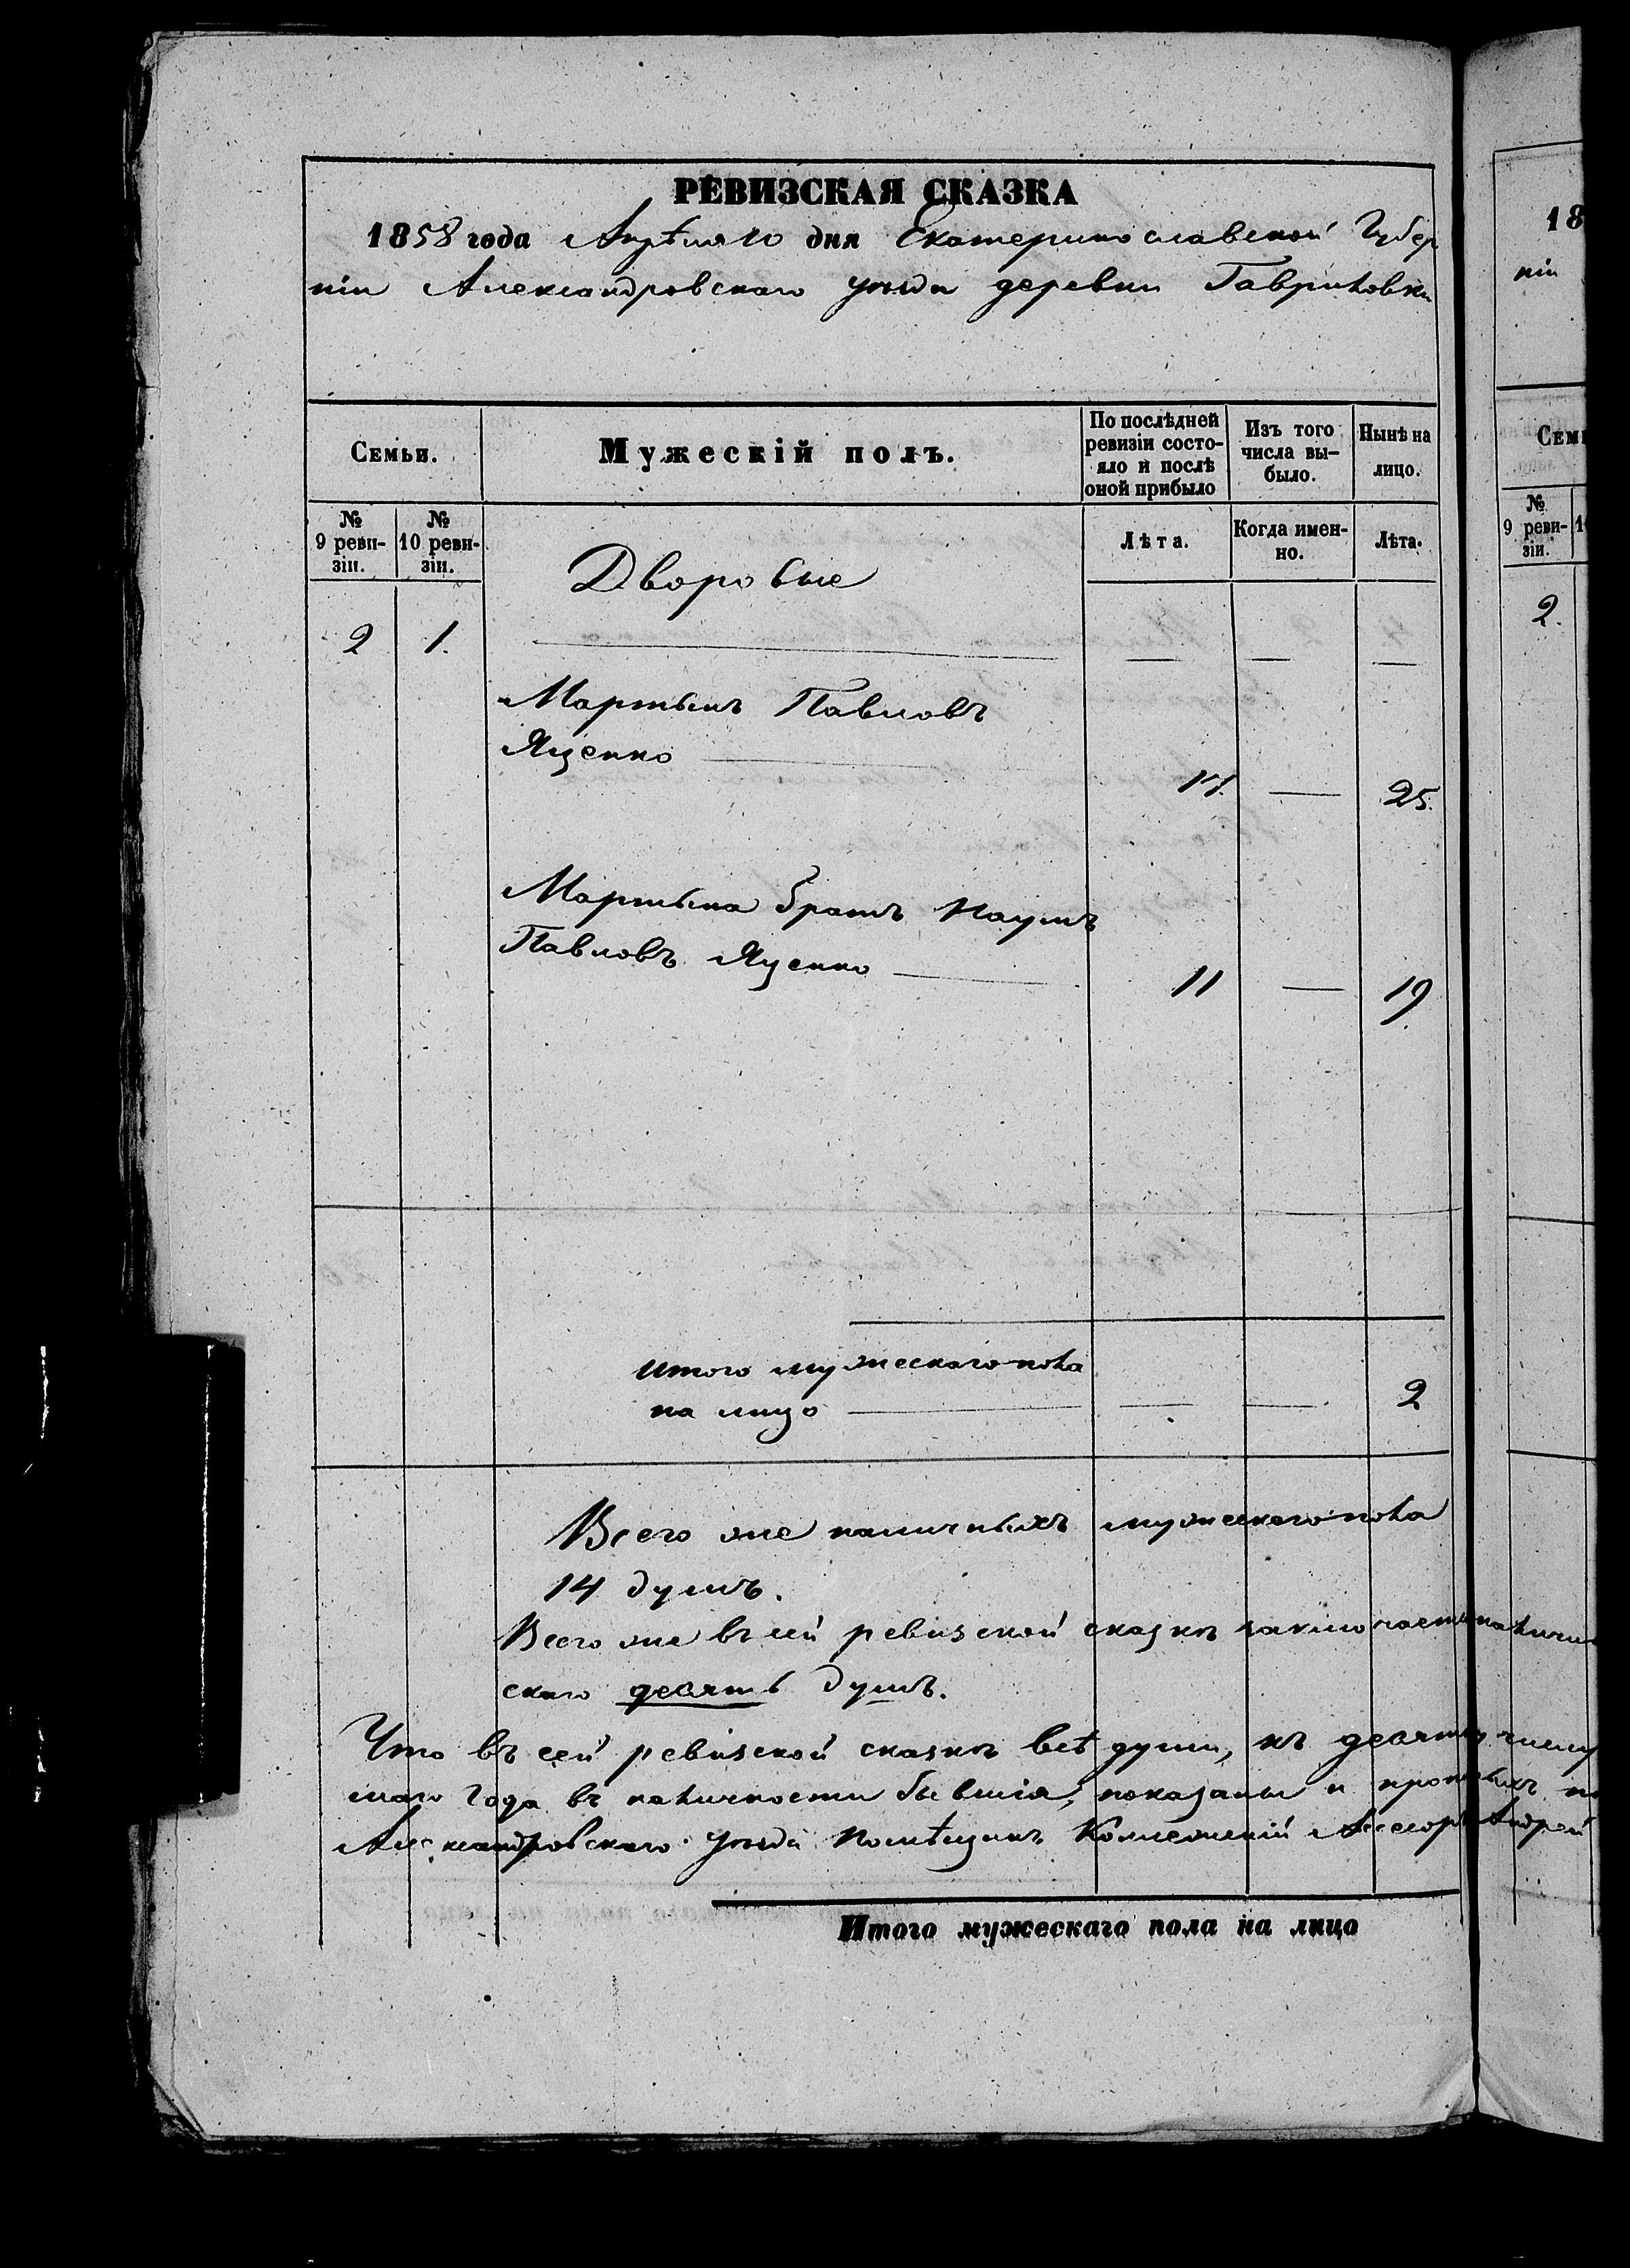 РЕВИЗСКАЯ СКАЗКА
1858 года Апрѣля 10 дня Екатеринославской Губер
ніи Александровскаго уѣзда деревни Гавриловки
Семьи.
Мужескій полъ.
По послѣдней ревизіи состо-
яло и послѣ оной прибыло
Изъ того числа вы-
было.
Нынѣ на лицо.
№ 9 реви-
зіи.
№ 10 реви-
зіи.
Лѣта.
Когда имен-
но.
Лѣта.
Дворовые
2 1.
Мартынъ Павловъ
Яценко 17. — 25.
Мартына братъ Наумъ
Павловъ Яценко 11 — 19
итого мужескаго пола
на лицо — — 2
Всего же наличныхъ мужескаго пола
14 душъ.
Всего же въ сей ревизской сказкѣ заключается наличн
скаго десять душъ.
Что въ сей ревизской сказкѣ всѣ души, къ десятому числу
маго Года въ наличности бывшія, показаны и
Александровскаго уѣзда Помѣщикъ Коллежскій Ассесоръ Андрей
Итого мужескаго пола на лицо
18
ніи
Семь
№ 9 реви-
зіи.
2.